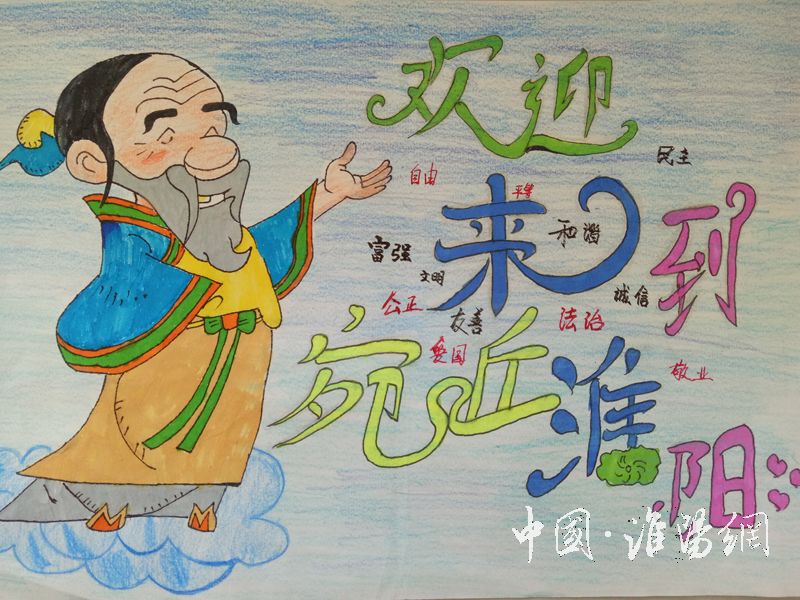 欢迎
民主
自由
平等
来到
和谐
富强
文明
誠信
公正
友善
法治
愛国
敬业
宛丘淮阳
中國·淮陽網